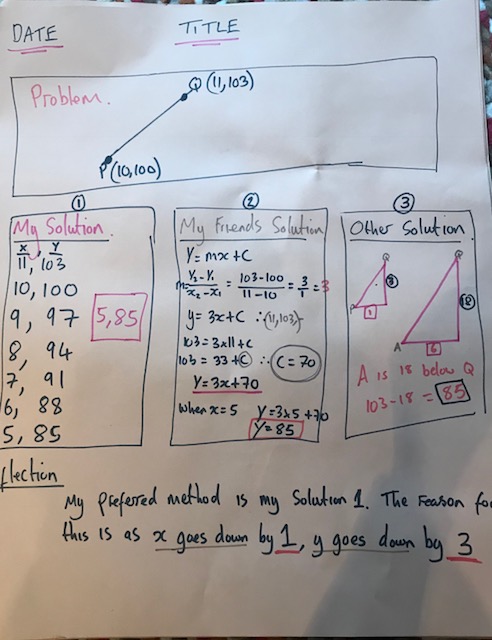 DATE TITLE
Problem.
Q (11,103)
P (10,100)
①
My Solution
x y
11, 103
10, 100
9, 97
8, 94
7, 91
6, 88
5, 85
5,85
②
My Friends Solution
Y=mx+C
m= Y₂-Y₁/x₂-x₁ = 103-100/11-10 = 3/1 = 3
y= 3x+C ∴(11,103)
103= 3x11+C
103= 33+C ∴ C=70
Y=3x+70
when x=5 Y=3x5+70
Y=85
③
Other Solution
Q
3
P
1
Q
18
A
6
A is 18 below Q
103-18 = 85
flection
My preferred method is my Solution 1. The reason fo
this is as x goes down by 1, y goes down by 3